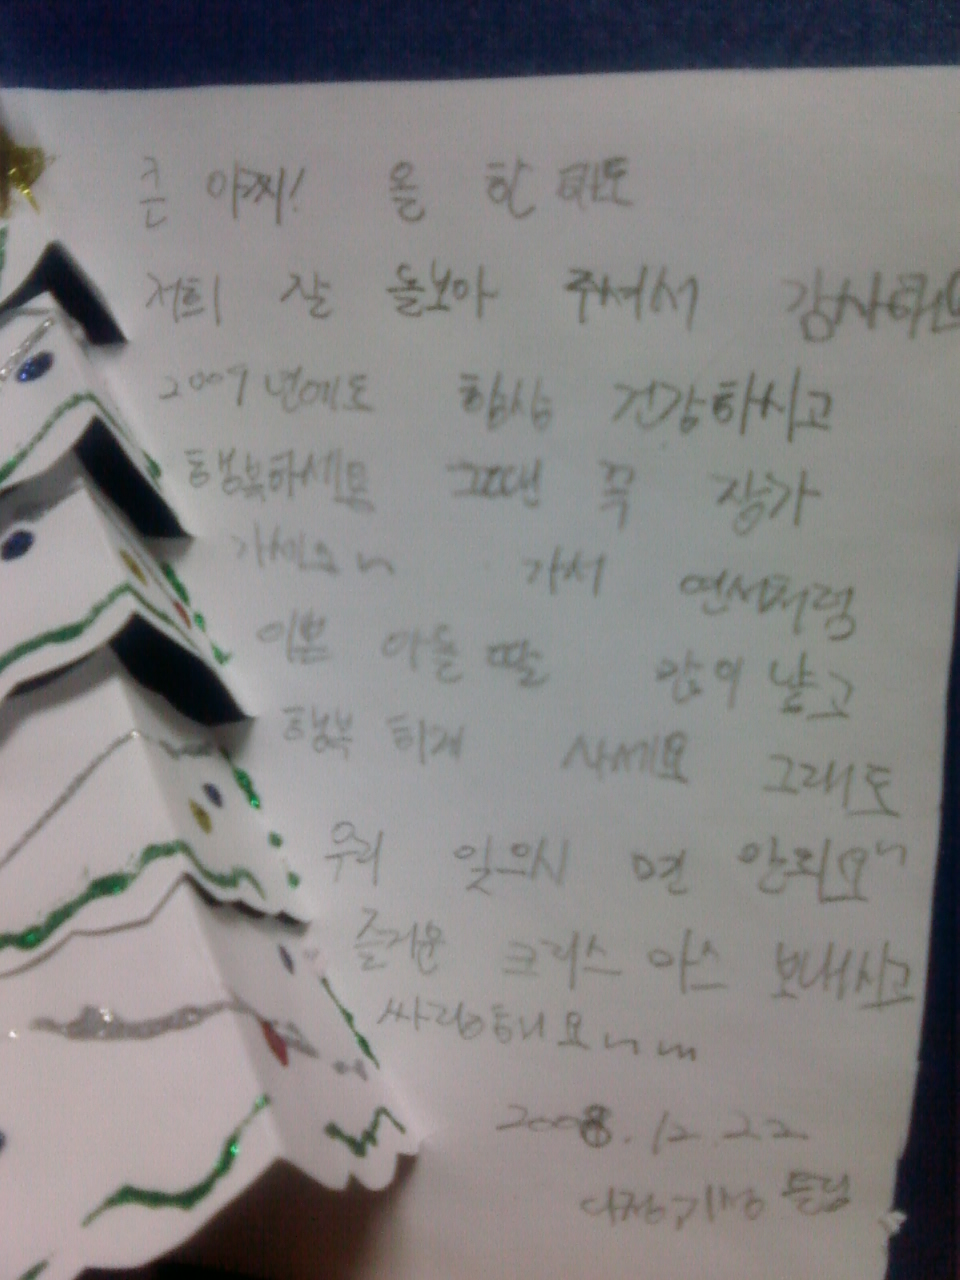 큰 아찌! 올 한 해도
저희 잘 돌보아 주셔서 감사해요
2009년에도 항상 건강하시고
행복하세요 그땐 꼭 장가
가세요^^ 가서 연서처럼
이쁜 아들 딸 많이 낳고
행복 하게 사세요 그래도
우리 잊으시 면 안되요^^
즐거운 크리스 마스 보내시고
싸랑해요^^m
2008.12.22
다정,기성 드림